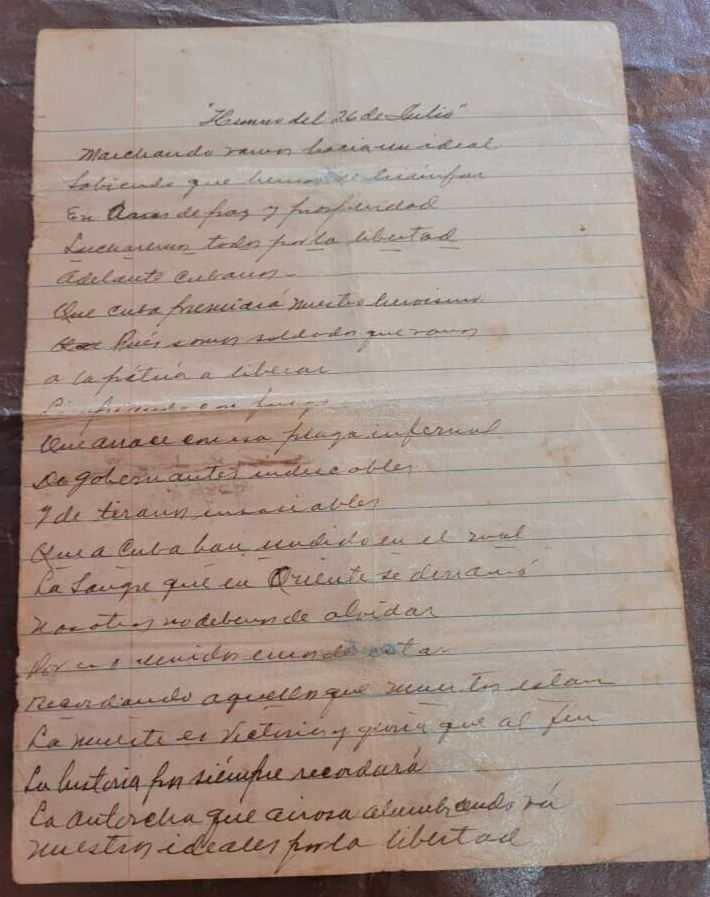 "Himno del 26 de Julio"
Marchando vamos hacia un ideal
Sabiendo que hemos de triunfar
En Aras de paz y prosperidad
Lucharemos todos por la libertad
Adelante cubanos
Que cuba premiará nuestro heroismo
Pués somos soldados que vamos
a la pátria a liberar
Limpiando con fuego
Que arrace con esa plaga infernal
De gobernantes indeceables
Y de tiranos insaciables
Que a Cuba han undido en el mal
La Sangre que en Oriente se derramó
Nosotros no debemos de olvidar
Por eso unidos emos de estar
recordando aquellos que muertos estan
La muerte es Victoria y gloria que al fin
La historia por siémpre recordará
La antorcha que airosa alumbrando vá
nuestros ideales por la libertad